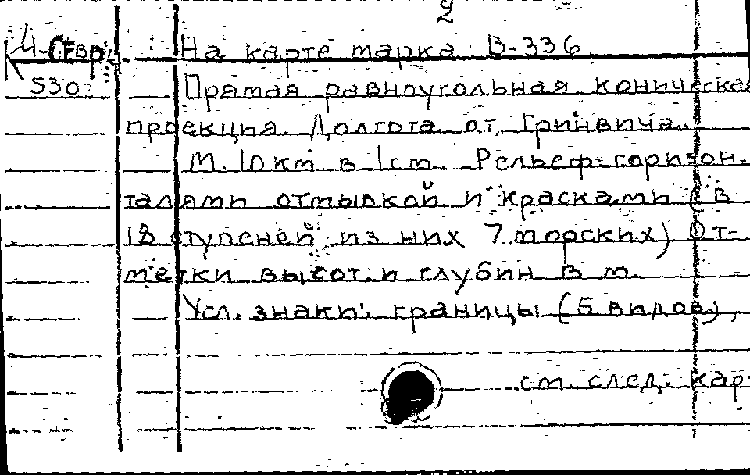 2
Ц-(Евр)
530
На карте марка В-336
Прямая равноугольная коническая
проекция. Долгота от Гринвича.
М. 10км в 1см. Рельеф-горизон-
талями отмывкой и красками (в
18 ступеней из них 7 морских) От-
метки высот и глубин в м.
Усл. знаки: границы (5 видов),
см. след. кар